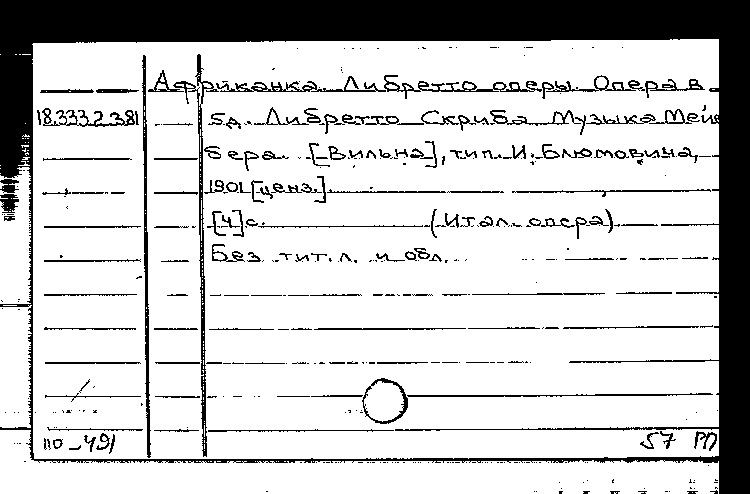 Африканка. Либретто оперы. Опера в
18.333.2.381 5д. Либретто Скриба Музыка Мейе
бера. [Вильна], тип. И. Блюмовича,
1901 [ценз.].
[4]с. (Итал. опера)
Без тит. л. и обл.
по-491 57 РП